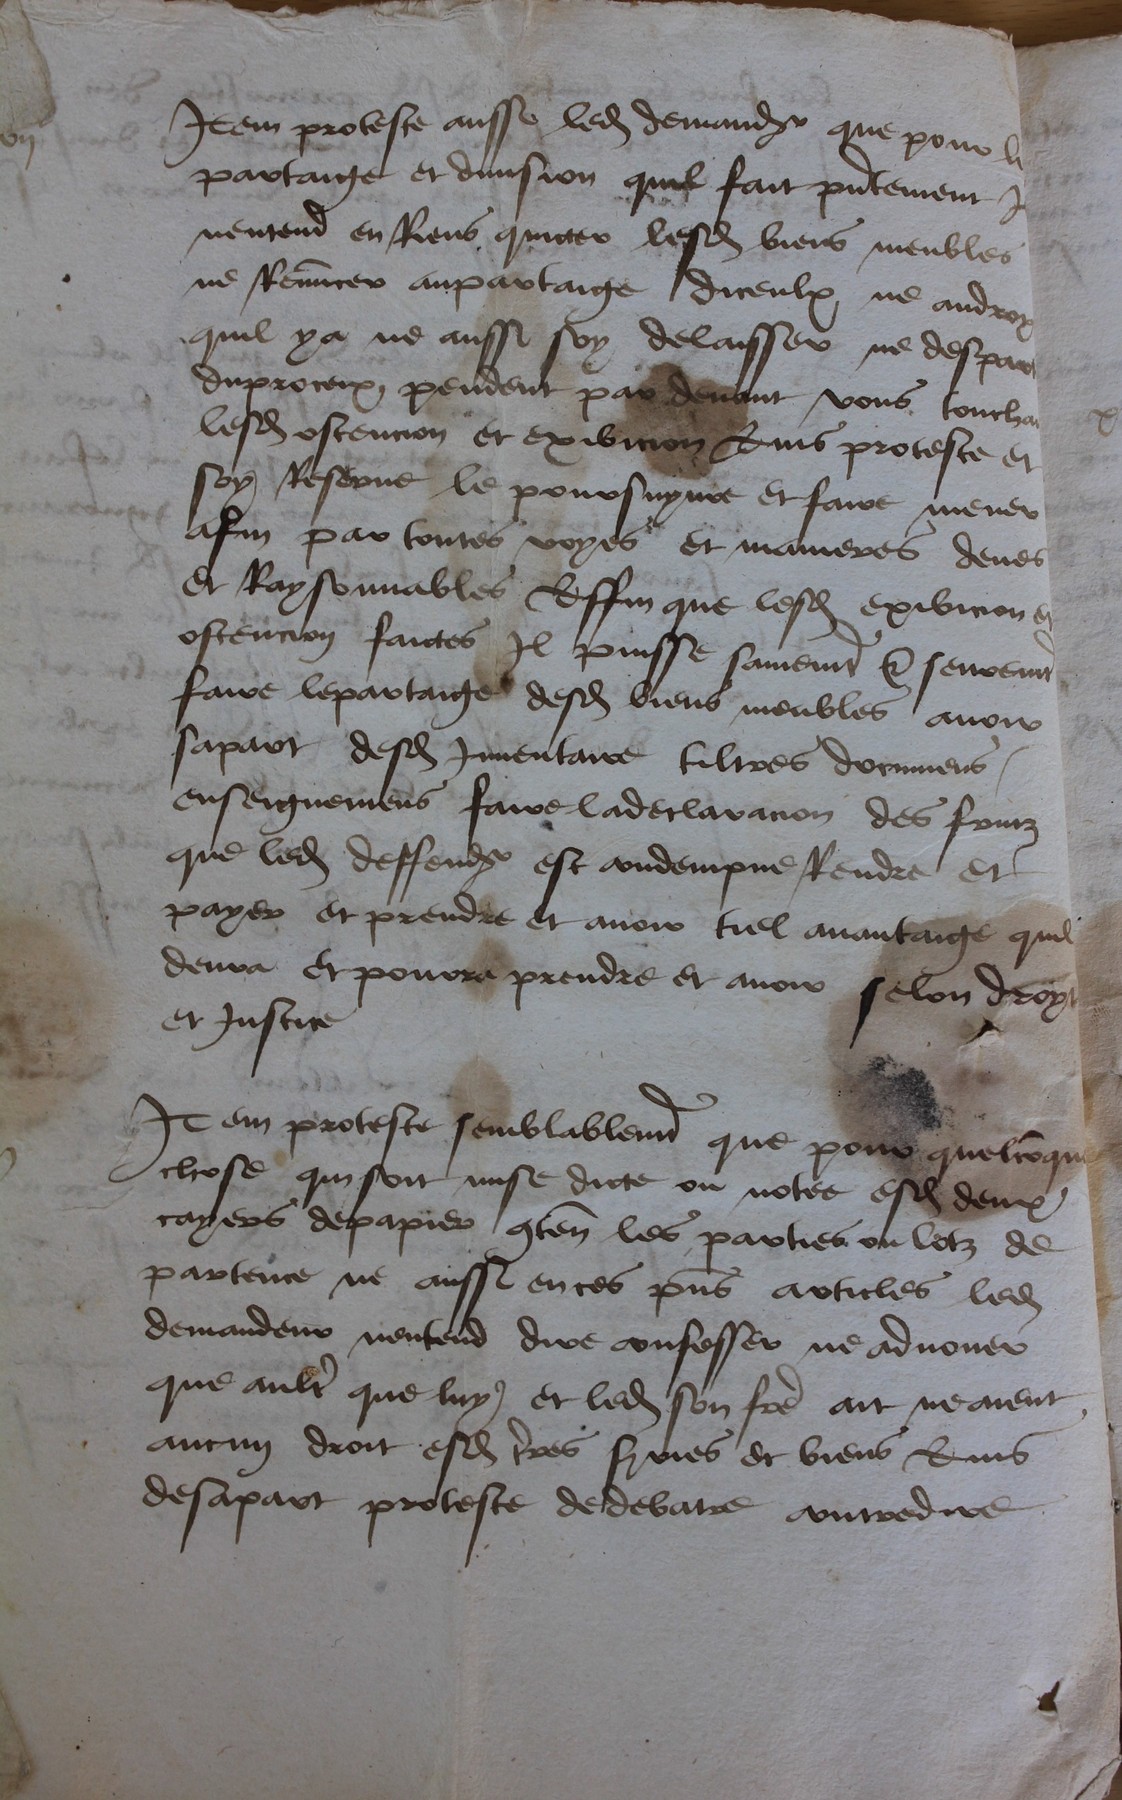 Item proteste aussi led demandr que pour le
partaige et division quil fait pntement Il
nentend en Riens quicter lesd biens meubles
ne Renũcer aupartaige diceulx ne audroy
quil ya ne aussi soy delaisser ne despart
duproceix pendent par devant vous touchan
lesd ostencion et exibicion Ains proteste et
soy Reserve le poursuyvre et faire mener
afin par toutes voyes et manieres deues
et Raysonnables Affin que lesd exibicion et
ostencion faictes Il puisse sainemt & seuremt
faire lepartaige desd biens meubles avoir
sapart desd Inventaire tiltres documens
enseignemens faire ladeclaracion des fruitz
que led deffendr est condempne Rendre et
payer et prendre et avoir tiel avantaige quil
devra et pourra prendre et avoir selon droyt
et Justice
Item proteste semblablemt que pour quelcõque
chose qui soit mise dicte ou notee esd deux
cayers depapier 9ten les parties ou lotz de
partence ne aussi ences pns articles led
demandeur nentend dire confesser ne advouer
que aultr que luy et led son fre ait ne aient
aucun droit esd tres syries et biens Ains
desapart proteste dedebatre contredire